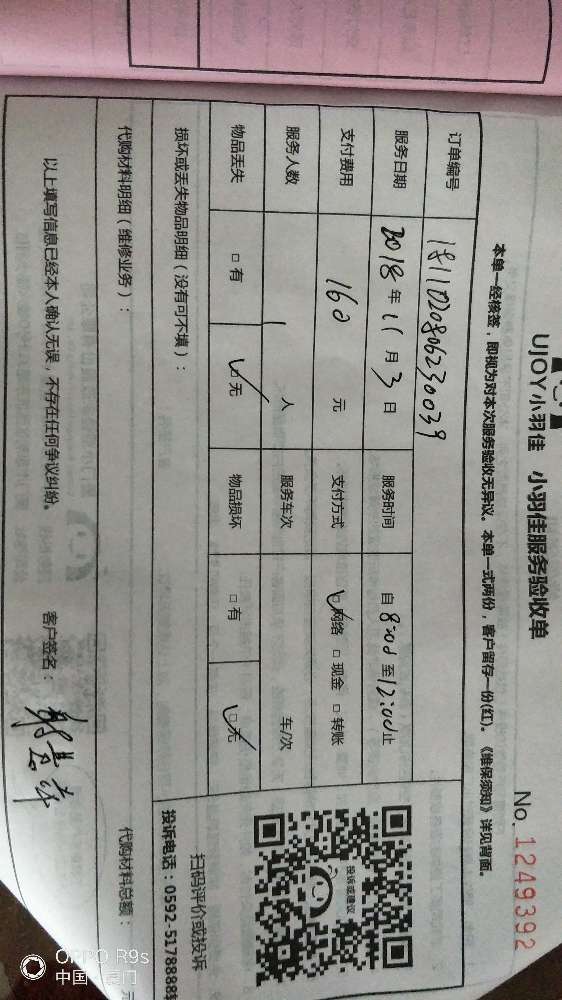 UJOY小羽佳 小羽佳服务验收单
No. 1249392
本单一经核签，即视为对本次服务验收无异议。本单一式两份，客户留存一份(红)。《维保须知》详见背面。
订单编号 1811020806230039
服务日期 2018年11月3日 服务时间 自8:00至12:00止
支付费用 160元 支付方式 ☑网络 □现金 □转账
服务人数 1人 服务车次 车/次
物品丢失 □有 ☑无 物品损坏 □有 ☑无
损坏或丢失物品明细（没有可不填）：
代购材料明细（维修业务）： 代购材料总额： 元
以上填写信息已经本人确认无误，不存在任何争议纠纷。 客户签名：
投诉或建议
扫码评价或投诉
投诉电话：0592-5178888转
OPPO R9s
中国·厦门